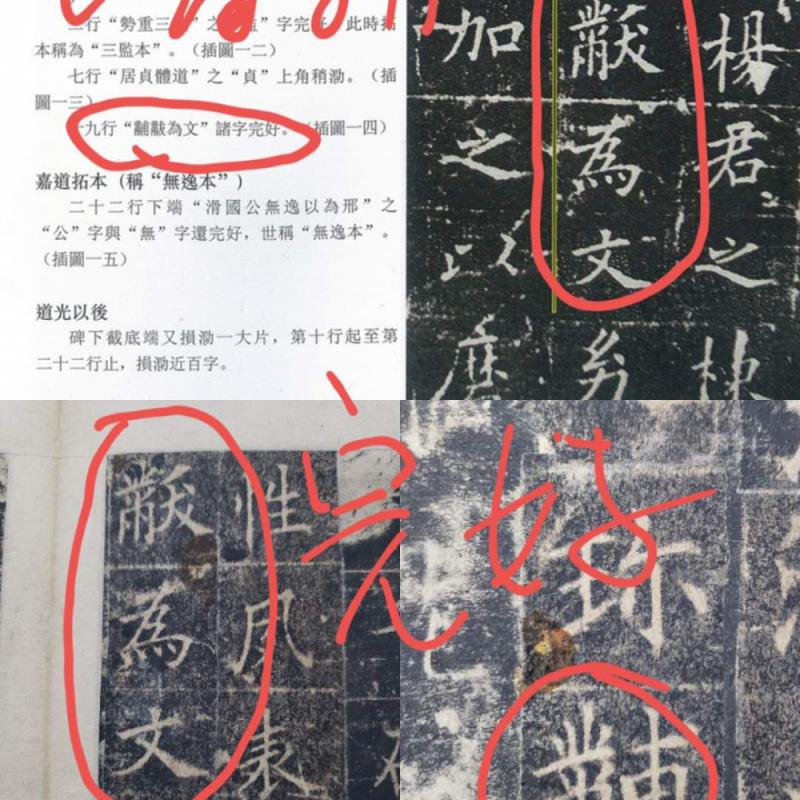 二行“勢重三監”之“監”字完好，此時拓
本稱為“三監本”。（插圖一二）
七行“居貞體道”之“貞”上角稍泐。（插
圖一三）
十九行“黼黻為文”諸字完好。（插圖一四）
嘉道拓本（稱“無逸本”）
二十二行下端“滑國公無逸以為邢”之
“公”字與“無”字還完好，世稱“無逸本”。
（插圖一五）
道光以後
碑下截底端又損泐一大片，第十行起至第
二十二行止，損泐近百字。
楊君之棟
黻為文
加之以
完好
性風表
黻為文
黼